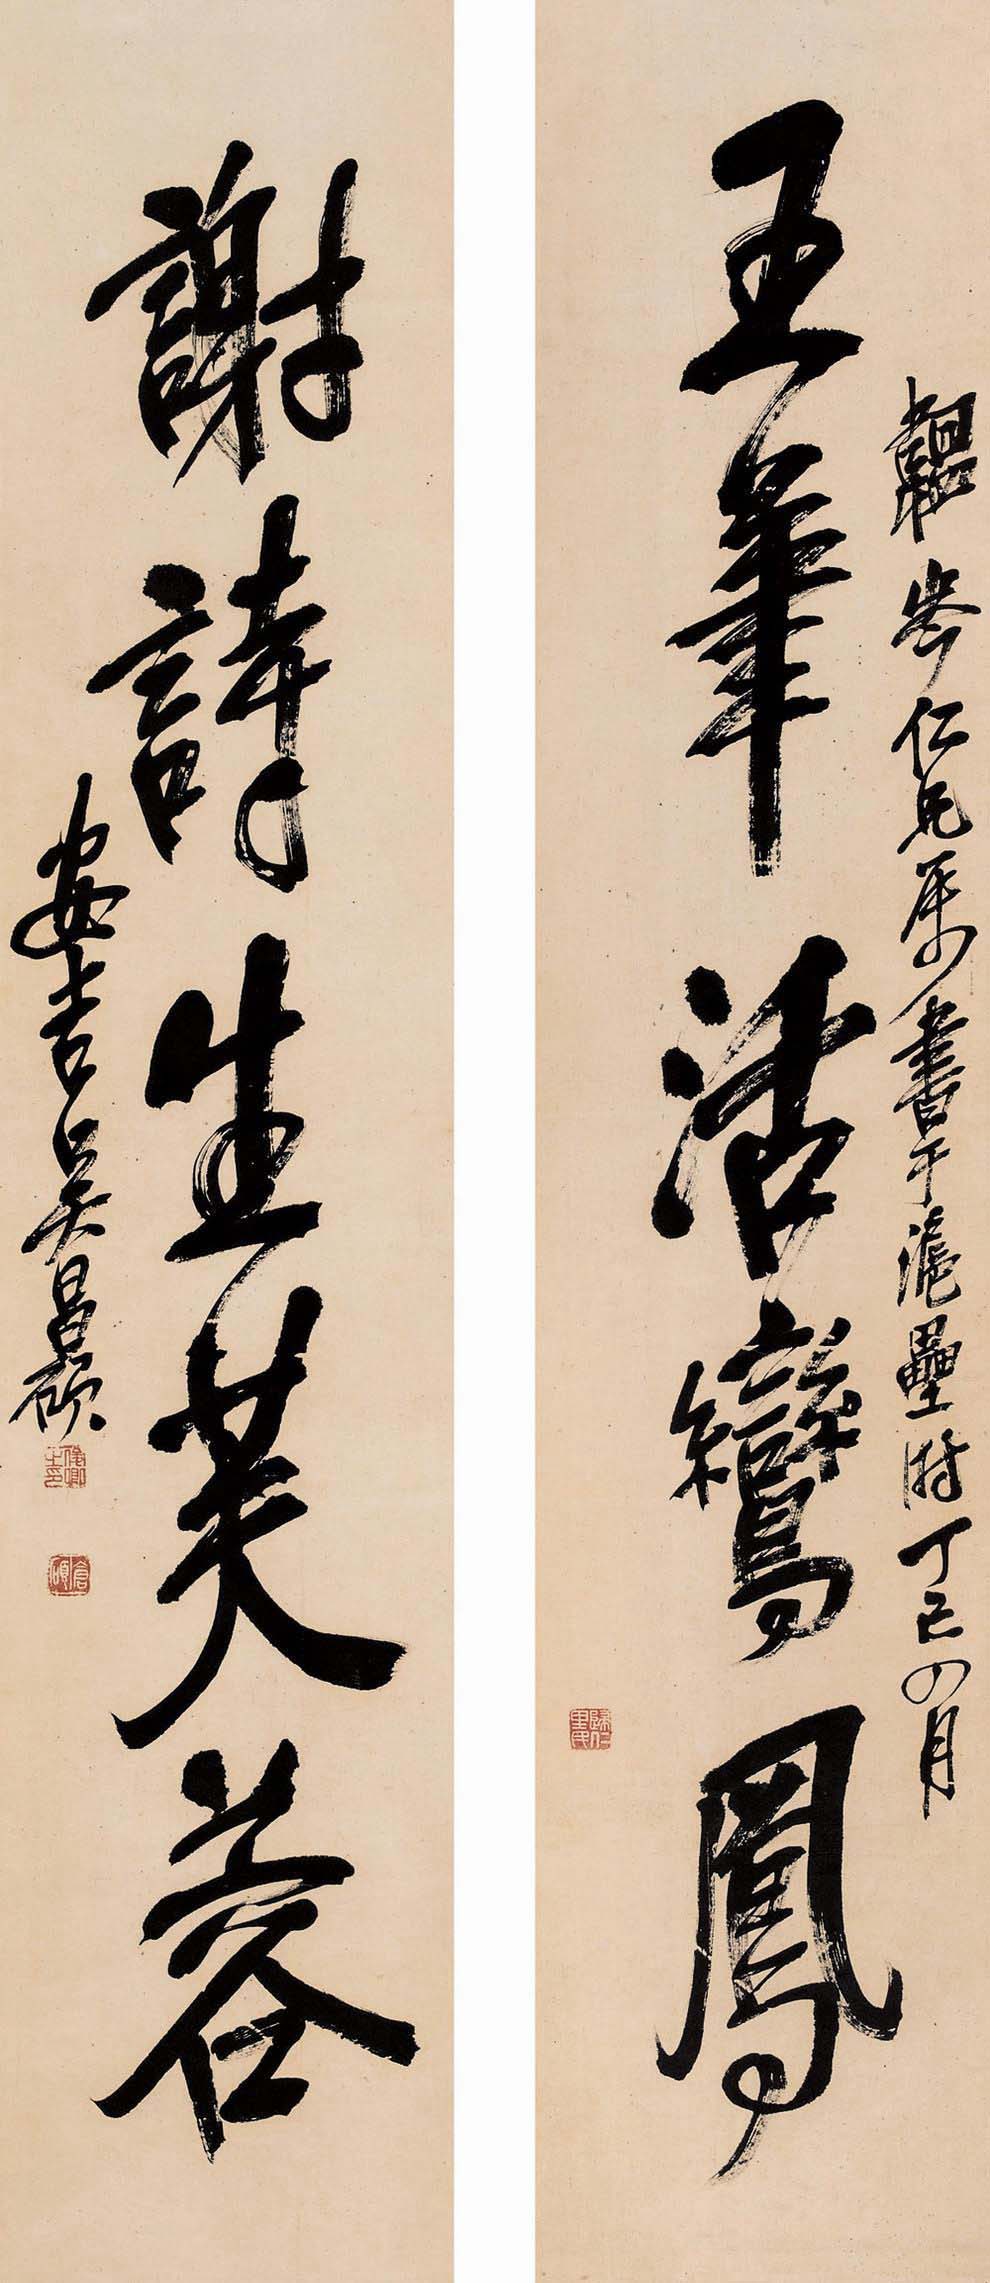 王筆活鸞鳳
韞岑仁兄屬書于滬壘時丁巳四月
謝詩生芙蓉
安吉吳昌碩
歸仁里民
俊卿之印
倉碩